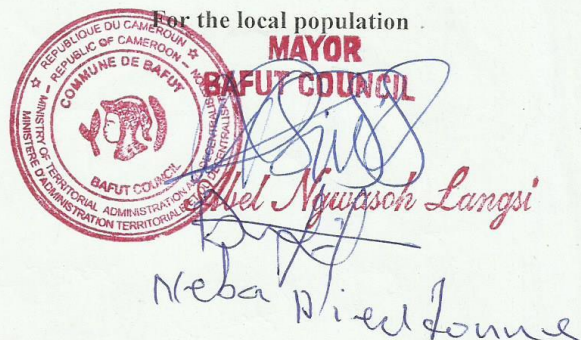 For the local population
MAYOR
BAFUT COUNCIL
RÉPUBLIQUE DU CAMEROUN
REPUBLIC OF CAMEROON
COMMUNE DE BAFUT
BAFUT COUNCIL
MINISTRY OF TERRITORIAL ADMINISTRATION AND DECENTRALISATION
MINISTERE D'ADMINISTRATION TERRITORIALE
DECENTRALISATION
Abel Ngwasoh Langsi
Neba Dieudonne